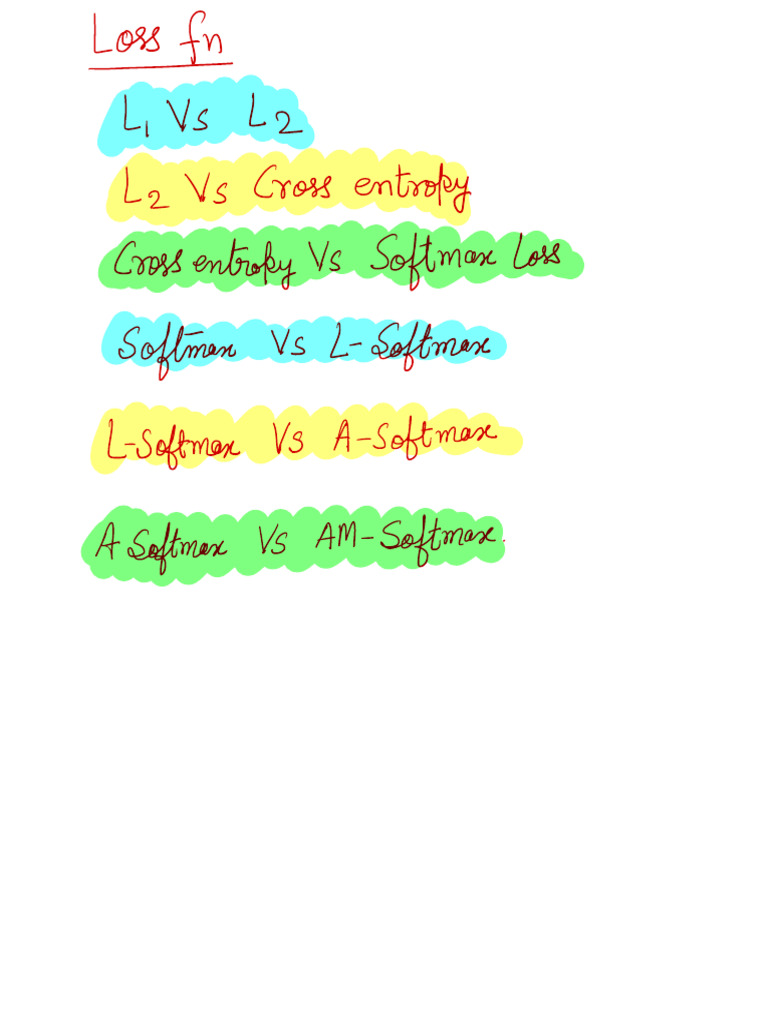 Loss fn
L1 Vs L2
L2 Vs Cross entropy
Cross entropy Vs Softmax Loss
Softmax Vs L-Softmax
L-Softmax Vs A-Softmax
A Softmax Vs AM-Softmax.